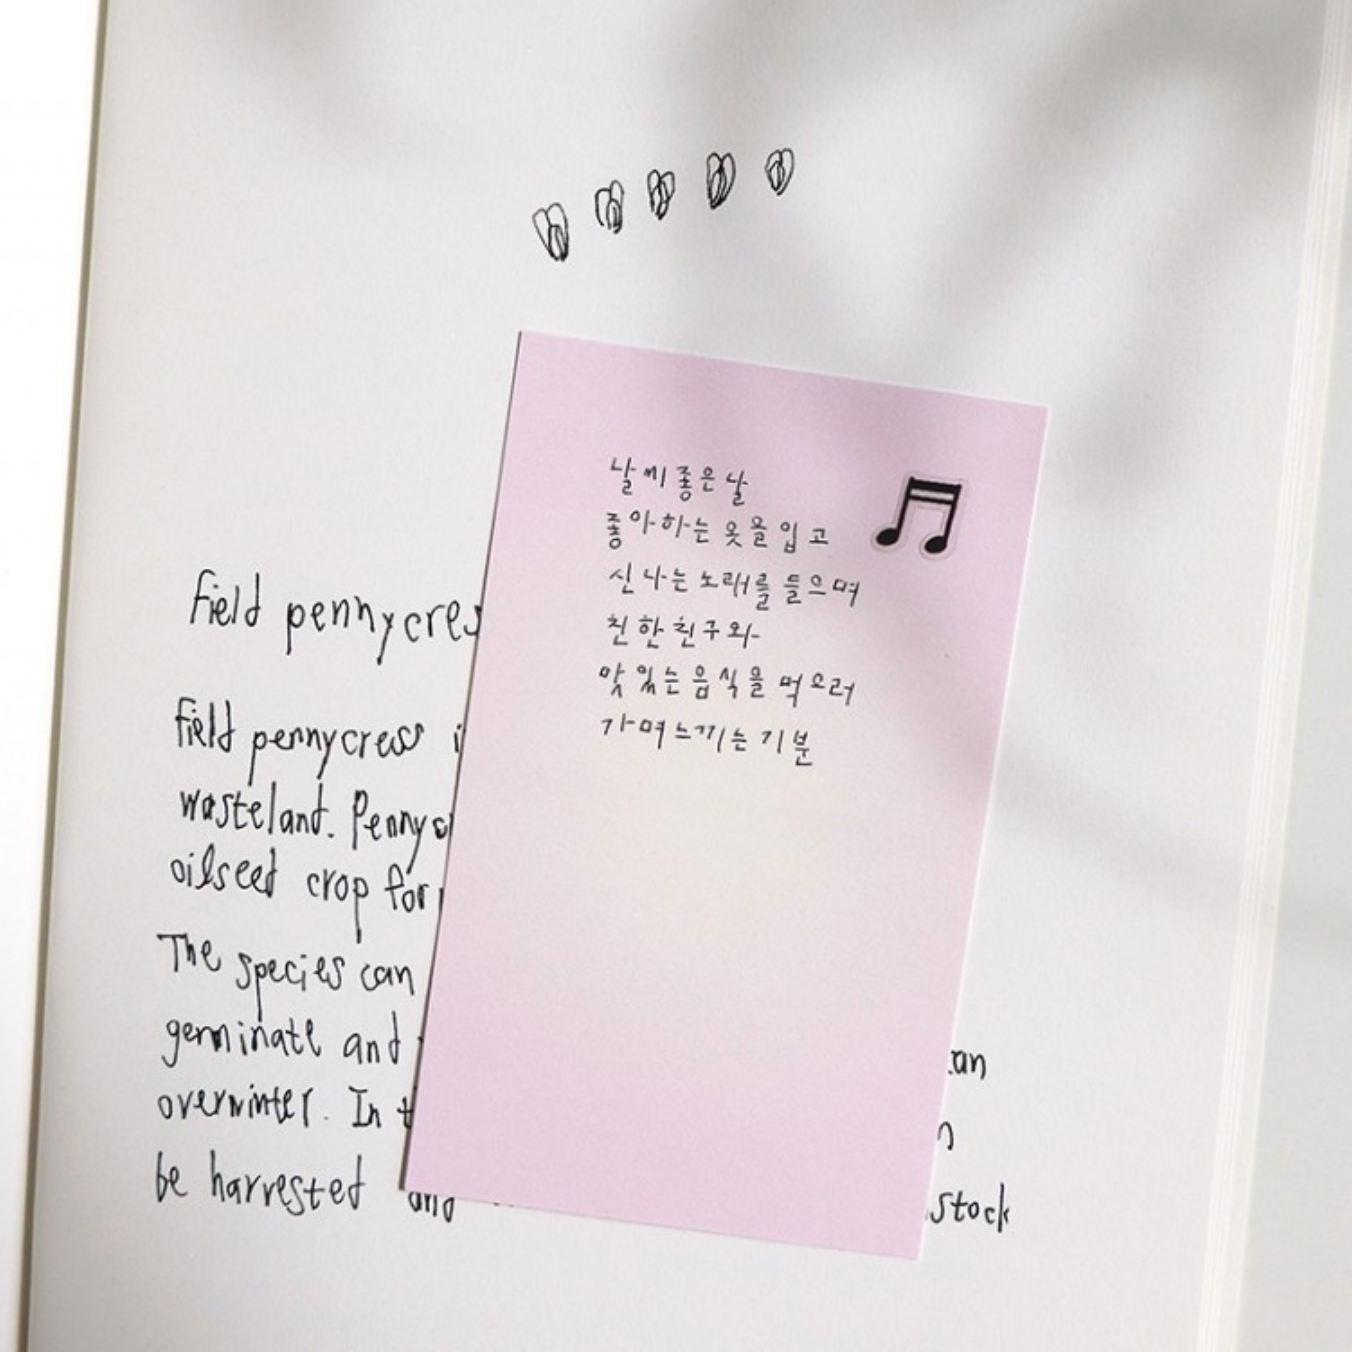 field pennycres
field pennycress i
wasteland. Pennyc
oilseed crop for
The species can
germinate and can
overwinter. In t
be harvested and stock
날씨 좋은 날
좋아하는 옷을 입고
신나는 노래를 들으며
친한 친구와
맛있는 음식을 먹으러
가며 느끼는 기분